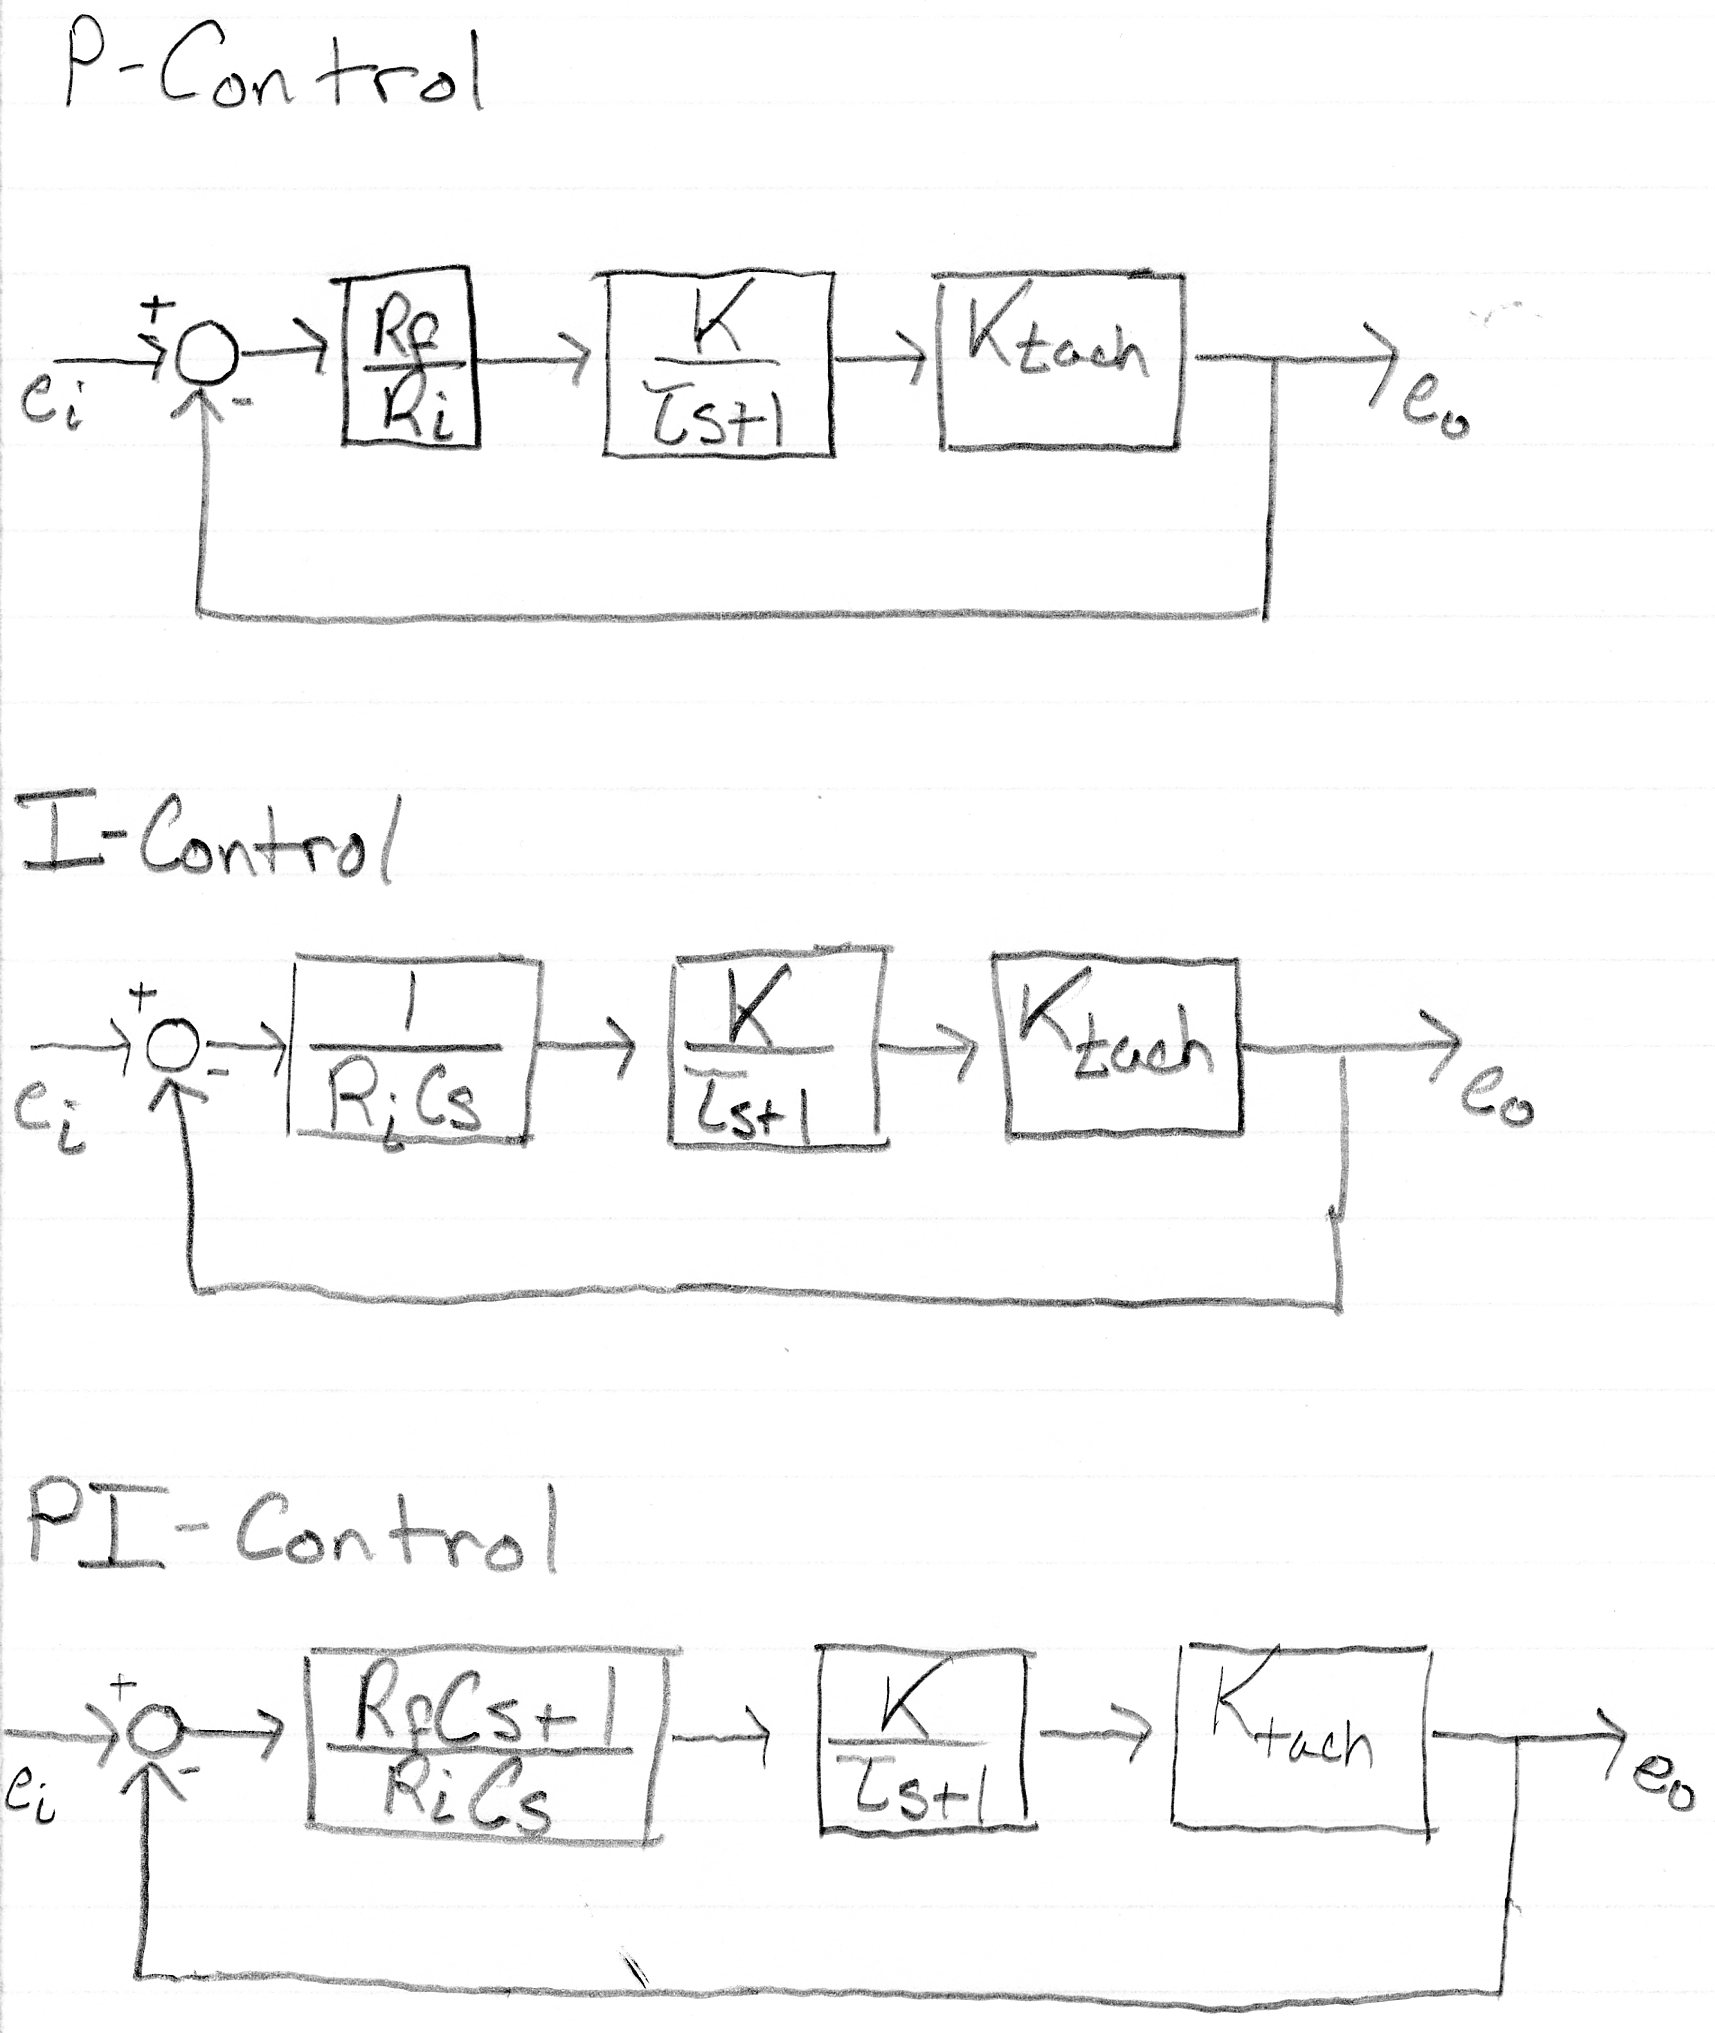 P-Control
+
ei
-
Rf
Ri
K
τs+1
Ktach
eo
I-Control
+
ei
-
1
RiCs
K
τs+1
Ktach
eo
PI-Control
+
ei
-
RfCs+1
RiCs
K
τs+1
Ktach
eo